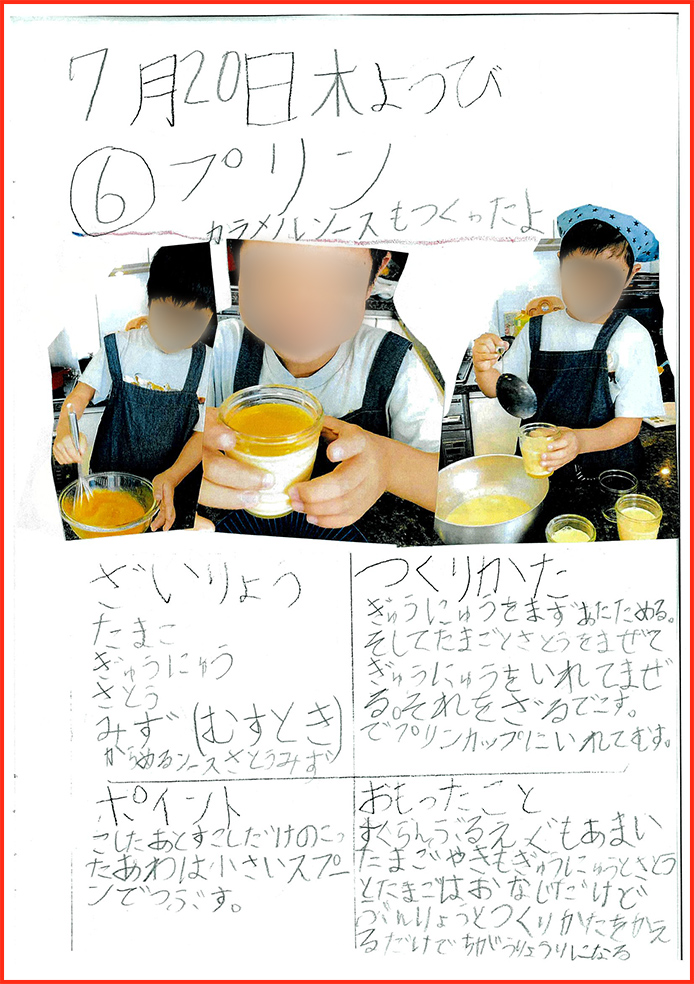 7月20日木ようび
⑥プリン
カラメルソースもつくったよ
ざいりょう
たまご
ぎゅうにゅう
さとう
みず(むすとき)
からめるソースさとうみず
つくりかた
ぎゅうにゅうをまずあたためる。
そしてたまごとさとうをまぜて
ぎゅうにゅうをいれてまぜ
る。それをざるでこす。
でプリンカップにいれてむす。
ポイント
こしたあとすこしだけのこっ
たあわは小さいスプー
ンでつぶす。
おもったこと
すくらんぶるえぐもあまい
たまごやきもぎゅうにゅうとさとう
とたまごはおなじだけど
ぶんりょうとつくりかたをかえ
るだけでちがうりょうりになる